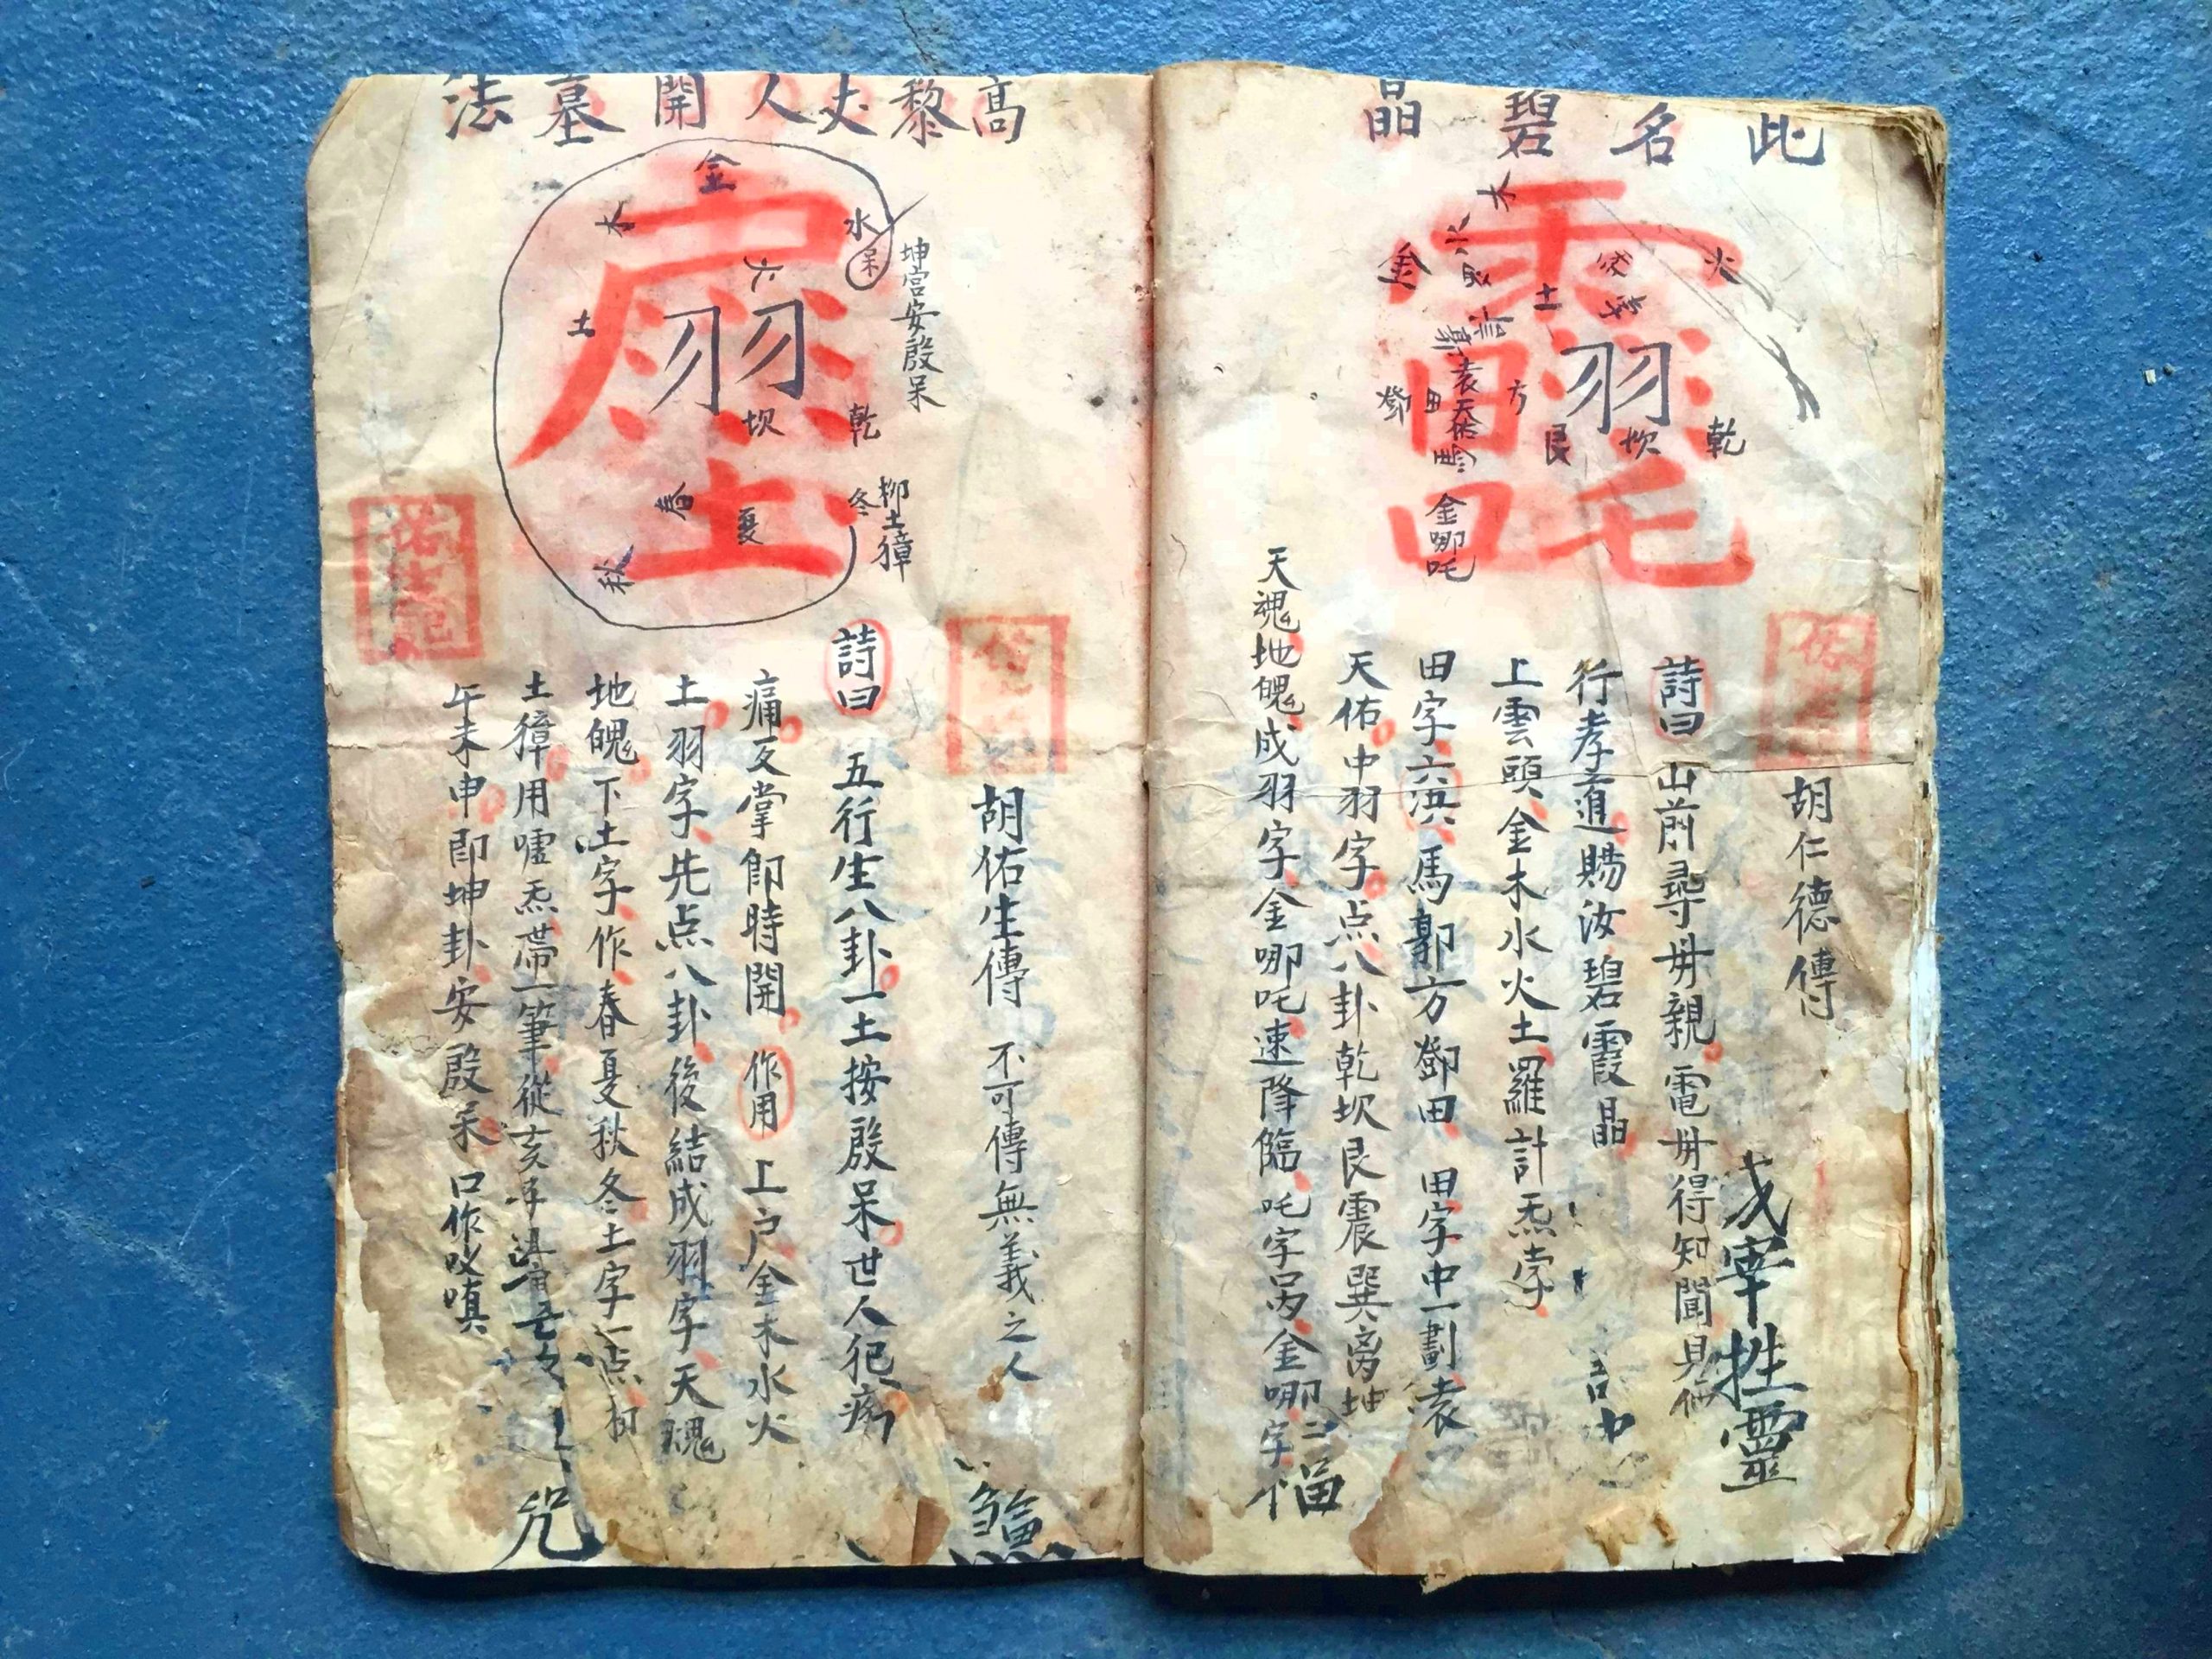 此名碧晶
木
水
金
火
土
羽
方
田
鄧
艮
坎
乾
袁天佑
金哪吒
胡仁德傳
詩曰 山前尋毋親電毋得知聞見俩
行孝道賜汝碧霞晶
上雲頭金木水火土羅計炁孛
田字六浜馬郭方鄧田 田字中一劃袁
天佑中羽字点八卦乾坎艮震巽离坤
天魂地魄成羽字金哪吒速降臨吒字另金哪二字
宰牲靈
高黎丈人開墓法
金
木
水
呆
六
土
羽
坤宮安殷呆
坎
乾
春
夏
秋
冬
柳土獐
佑生記
胡佑生傳 不可傳無義之人
詩曰 五行生八卦一土按殷呆世人犯瘍
痛反掌卽時開 作用 上户金木水火
土羽字先点八卦後結成羽字天魂
地魄下土字作春夏秋冬土字一点柳
土獐用噓炁帶一筆從亥
午未申即坤卦安殷呆口作嗔
咒